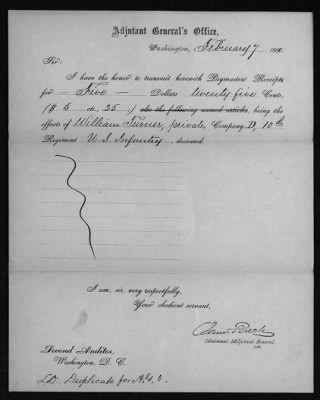 Adjutant General's Office,
Washington, February 7 188
Sir:
I have the honor to transmit herewith Paymasters' Receipts
for — Five — Dollars twenty five Cents,
($ 5 cts. 25 /) also the following named articles, being the
effects of William Turner, private Company D, 10th
Regiment U. S. Infantry deceased.
I am, sir, very respectfully,
Your obedient servant,
Assistant Adjutant General.
Second Auditor,
Washington, D. C.
Duplicate for A. G. O.